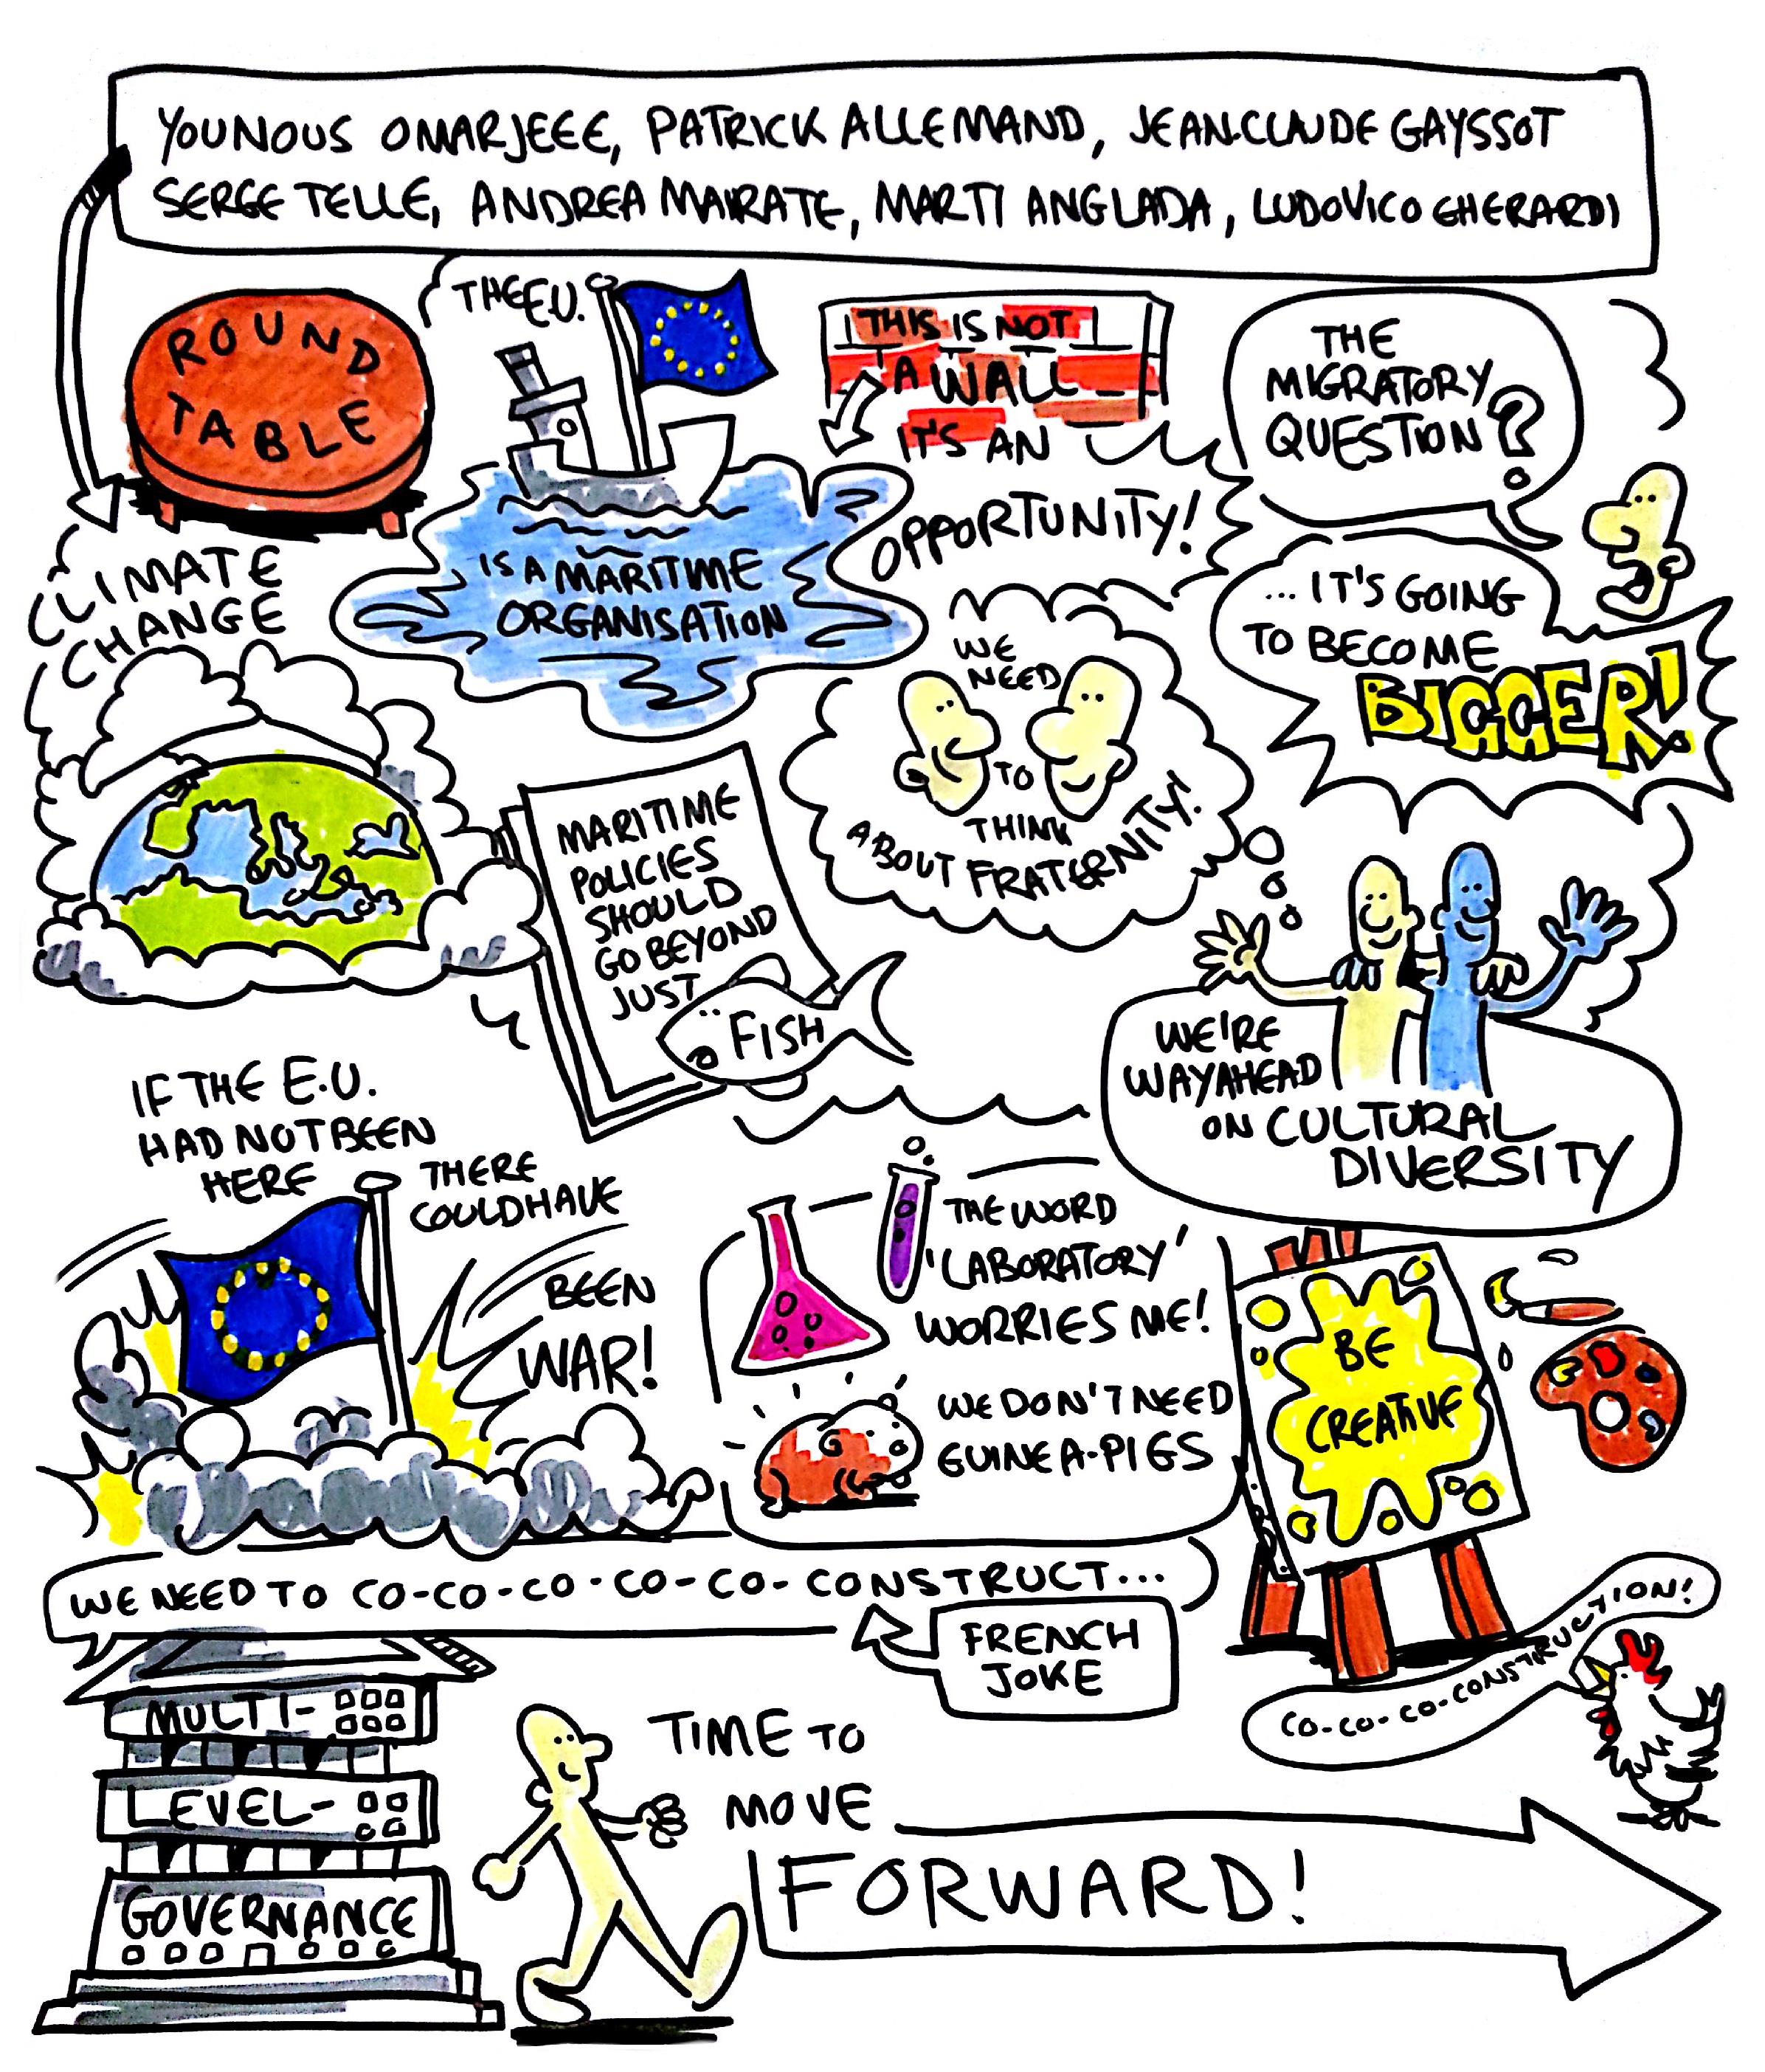 YOUNOUS OMARJEEE, PATRICK ALLEMAND, JEAN-CLAUDE GAYSSOT
SERGE TELLE, ANDREA MAIRATE, MARTI ANGLADA, LUDOVICO GHERARDI
ROUND
TABLE
THE E.U.
IS A MARITIME
ORGANISATION
THIS IS NOT
A WALL
IT'S AN
OPPORTUNITY!
THE
MIGRATORY
QUESTION?
...IT'S GOING
TO BECOME
BIGGER!
CLIMATE
CHANGE
WE
NEED
TO
THINK
ABOUT FRATERNITY!
MARITIME
POLICIES
SHOULD
GO BEYOND
JUST
FISH
WE'RE
WAY AHEAD
ON CULTURAL
DIVERSITY
IF THE E.U.
HAD NOT BEEN
HERE
THERE
COULD HAVE
BEEN
WAR!
THE WORD
'LABORATORY'
WORRIES ME!
WE DON'T NEED
GUINEA-PIGS
BE
CREATIVE
WE NEED TO CO-CO-CO-CO-CO-CONSTRUCT...
FRENCH
JOKE
CO-CO-CO-CONSTRUCTION!
MULTI-
LEVEL-
GOVERNANCE
TIME TO
MOVE
FORWARD!